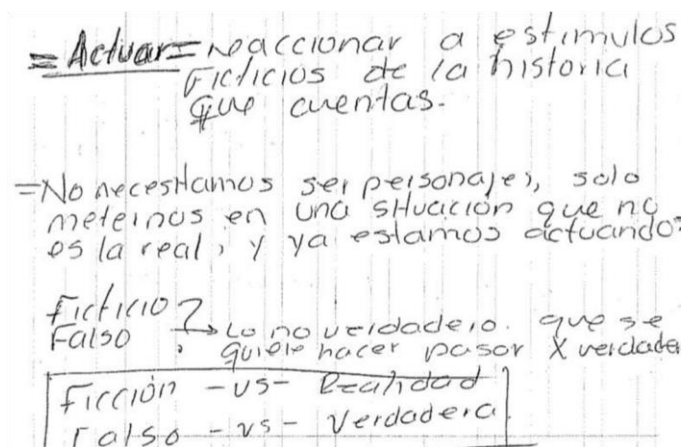 = Actuar = Reaccionar a estimulos
Ficticios de la historia
que cuentas.
= No necesitamos ser personajes, solo
meternos en una situación que no
es la real, y ya estamos actuando?
Ficticio ?
Falso → Lo no verdadero. que se
quiere hacer pasar X verdade
Ficción - vs - Realidad
Falso - vs - Verdadera